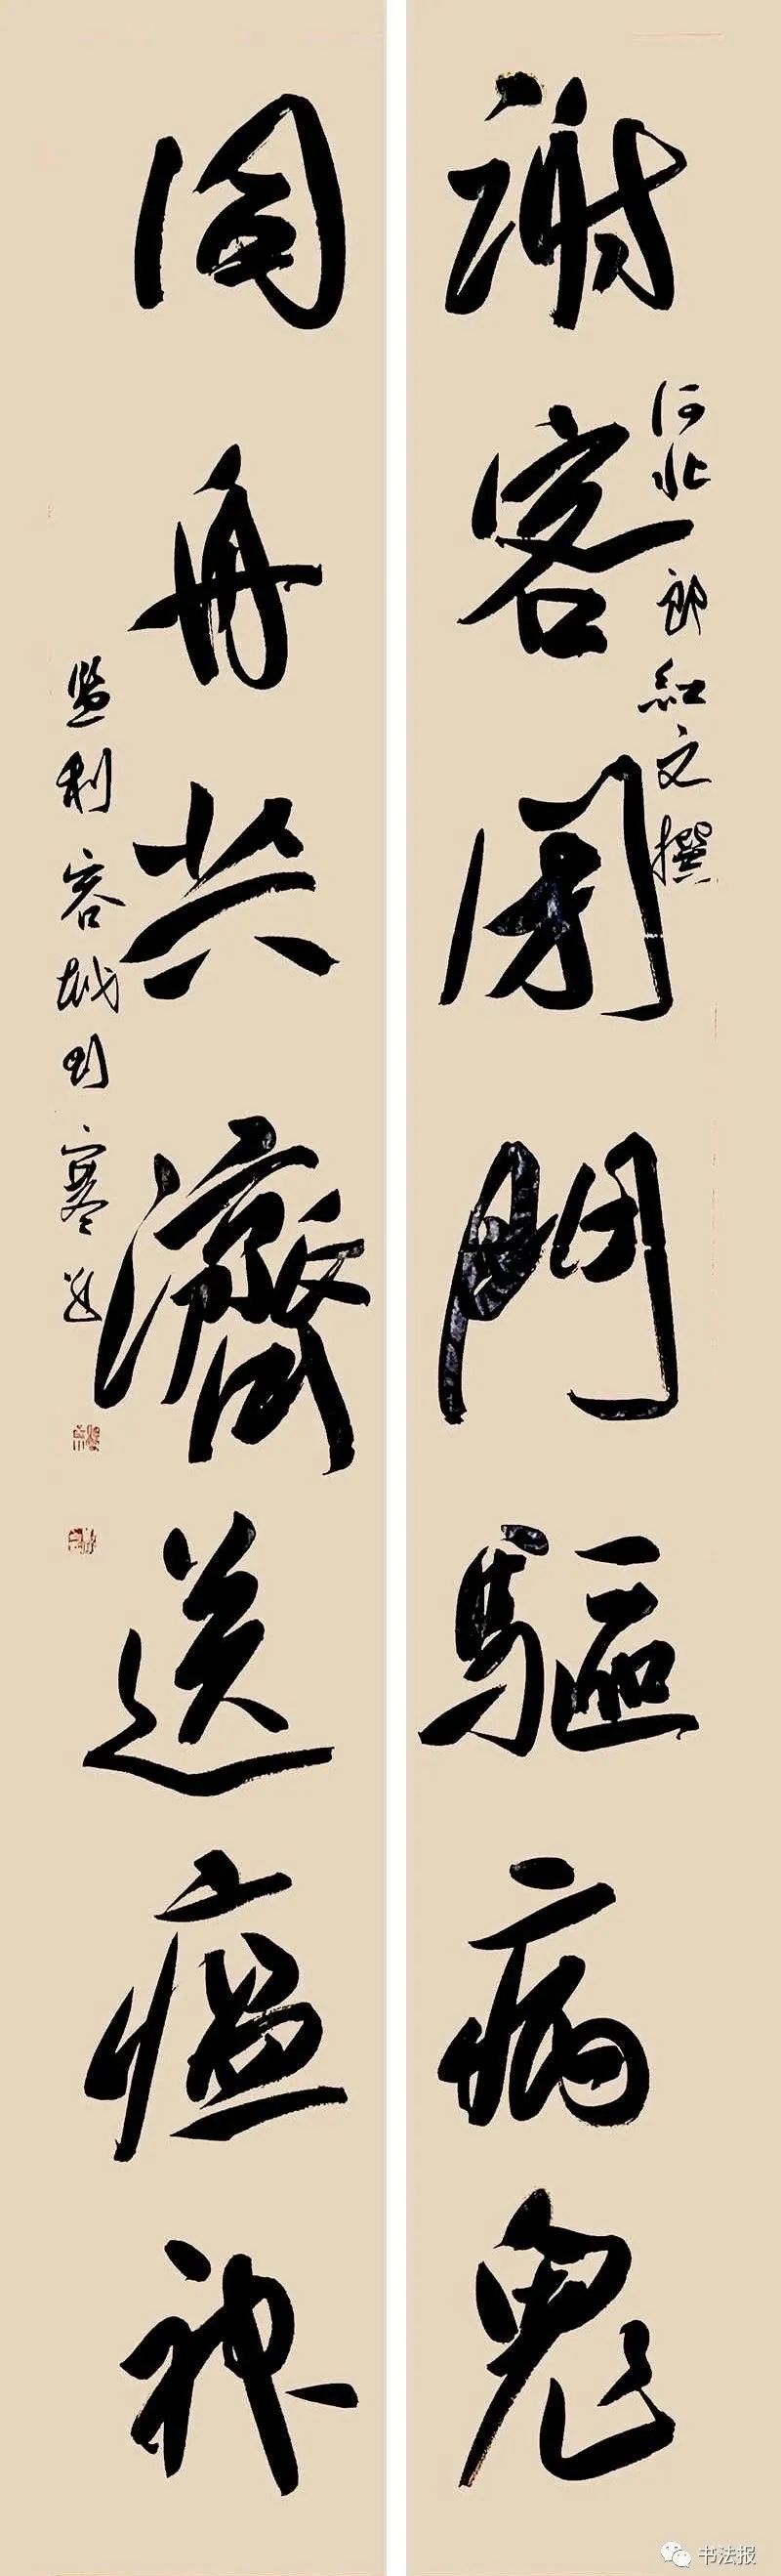 謝客閉門驅病鬼
河北郎紅文撰
同舟共濟送瘟神
監利容城
书法报